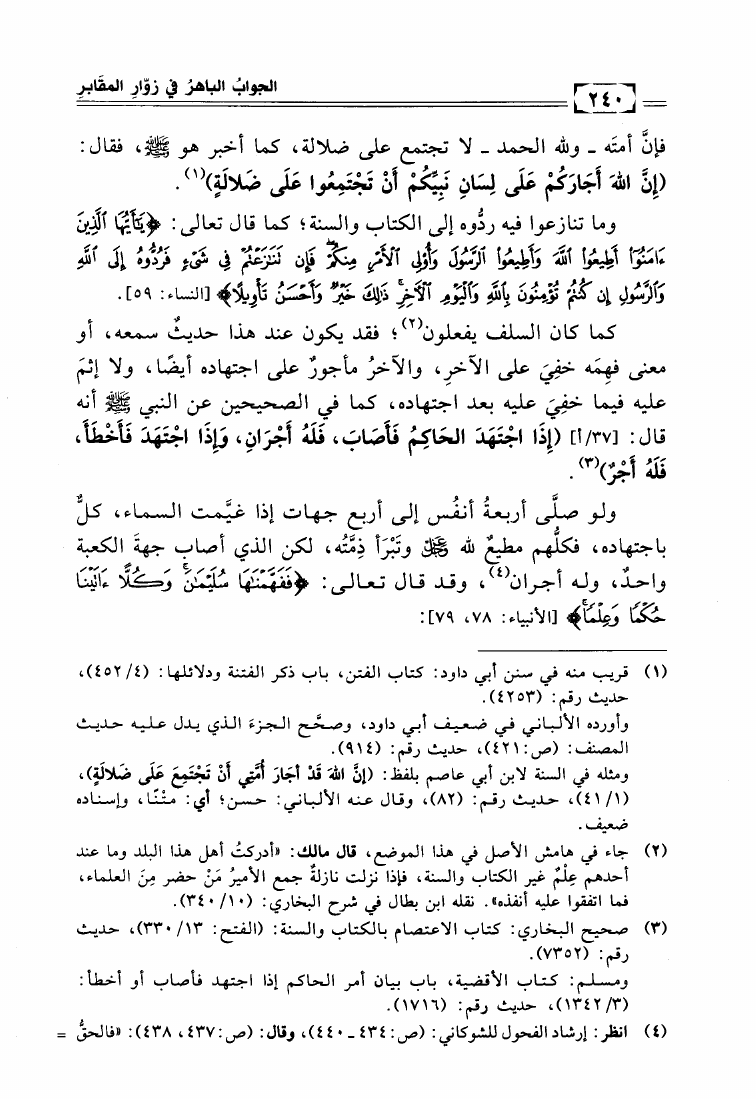 الجوابُ الباهرُ في زوّارِ المقَابرِ
٢٤٠
فإنَّ أمتَه ـ ولله الحمد ـ لا تجتمع على ضلالة، كما أخبر هو ﷺ، فقال:
(إِنَّ اللهَ أَجَارَكُمْ عَلَى لِسَانِ نَبِيِّكُمْ أَنْ تَجْتَمِعُوا عَلَى ضَلَالَةٍ)(١).
وما تنازعوا فيه ردُّوه إلى الكتاب والسنة؛ كما قال تعالى: ﴿يَٰٓأَيُّهَا ٱلَّذِينَ
ءَامَنُوٓا۟ أَطِيعُوا۟ ٱللَّهَ وَأَطِيعُوا۟ ٱلرَّسُولَ وَأُو۟لِى ٱلْأَمْرِ مِنكُمْ ۖ فَإِن تَنَٰزَعْتُمْ فِى شَىْءٍ فَرُدُّوهُ إِلَى ٱللَّهِ
وَٱلرَّسُولِ إِن كُنتُمْ تُؤْمِنُونَ بِٱللَّهِ وَٱلْيَوْمِ ٱلْءَاخِرِ ۚ ذَٰلِكَ خَيْرٌ وَأَحْسَنُ تَأْوِيلًا﴾ [النساء: ٥٩].
كما كان السلف يفعلون(٢)؛ فقد يكون عند هذا حديثٌ سمعه، أو
معنى فهِمَه خفِيَ على الآخرِ، والآخرُ مأجورٌ على اجتهاده أيضًا، ولا إثمَ
عليه فيما خفِيَ عليه بعد اجتهاده، كما في الصحيحين عن النبي ﷺ أنه
قال: [٣٧/أ] (إِذَا اجْتَهَدَ الحَاكِمُ فَأَصَابَ، فَلَهُ أَجْرَانِ، وَإِذَا اجْتَهَدَ فَأَخْطَأَ،
فَلَهُ أَجْرٌ)(٣).
ولو صلَّى أربعةُ أنفُس إلى أربع جهات إذا غيَّمت السماء، كلٌّ
باجتهاده، فكلُّهم مطيعٌ لله ﷿ وتَبْرَأ ذِمَّتُه، لكن الذي أصاب جهةَ الكعبة
واحدٌ، وله أجران(٤)، وقد قال تعالى: ﴿فَفَهَّمْنَٰهَا سُلَيْمَٰنَ ۚ وَكُلًّا ءَاتَيْنَا
حُكْمًا وَعِلْمًا ۚ﴾ [الأنبياء: ٧٨، ٧٩]:
(١) قريب منه في سنن أبي داود: كتاب الفتن، باب ذكر الفتنة ودلائلها: (٤٥٢/٤)،
حديث رقم: (٤٢٥٣).
وأورده الألباني في ضعيف أبي داود، وصحَّح الجزءَ الذي يدل عليه حديث
المصنف: (ص:٤٢١)، حديث رقم: (٩١٤).
ومثله في السنة لابن أبي عاصم بلفظ: (إِنَّ اللهَ قَدْ أَجَارَ أُمَّتِي أَنْ تَجْتَمِعَ عَلَى ضَلَالَةٍ)،
(٤١/١)، حديث رقم: (٨٢)، وقال عنه الألباني: حسن؛ أي: متْنًا، وإسناده
ضعيف.
(٢) جاء في هامش الأصل في هذا الموضع، قال مالك: «أدركتُ أهل هذا البلد وما عند
أحدهم عِلْمٌ غير الكتاب والسنة، فإذا نزلت نازلةٌ جمع الأميرُ مَنْ حضر مِنَ العلماء،
فما اتفقوا عليه أنفذه». نقله ابن بطال في شرح البخاري: (٣٤٠/١٠).
(٣) صحيح البخاري: كتاب الاعتصام بالكتاب والسنة: (الفتح: ٣٣٠/١٣)، حديث
رقم: (٧٣٥٢).
ومسلم: كتاب الأقضية، باب بيان أمر الحاكم إذا اجتهد فأصاب أو أخطأ:
(١٣٤٢/٣)، حديث رقم: (١٧١٦).
(٤) انظر: إرشاد الفحول للشوكاني: (ص:٤٣٤ ـ ٤٤٠)، وقال: (ص:٤٣٧، ٤٣٨): «فالحقُّ =